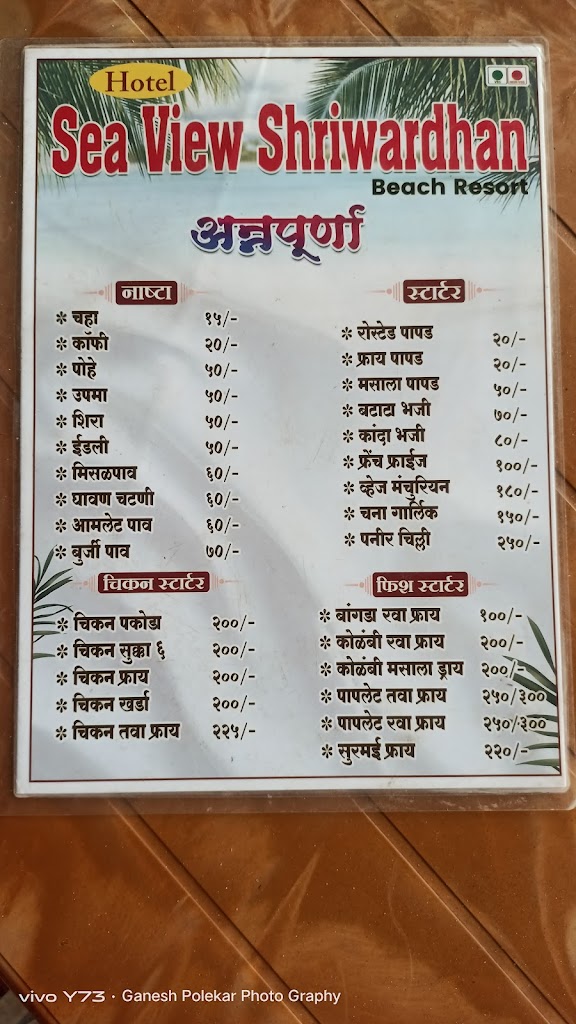 Hotel
Sea View Shriwardhan
Beach Resort
अन्नपूर्णा
नाष्टा
✻ चहा १५/-
✻ कॉफी २०/-
✻ पोहे ५०/-
✻ उपमा ५०/-
✻ शिरा ५०/-
✻ ईडली ५०/-
✻ मिसळपाव ६०/-
✻ घावण चटणी ६०/-
✻ आमलेट पाव ६०/-
✻ बुर्जी पाव ७०/-
स्टार्टर
✻ रोस्टेड पापड २०/-
✻ फ्राय पापड २०/-
✻ मसाला पापड ५०/-
✻ बटाटा भजी ७०/-
✻ कांदा भजी ८०/-
✻ फ्रेंच फ्राईज १००/-
✻ व्हेज मंचुरियन १८०/-
✻ चना गार्लिक १५०/-
✻ पनीर चिल्ली २५०/-
चिकन स्टार्टर
✻ चिकन पकोडा २००/-
✻ चिकन सुक्का ६ २००/-
✻ चिकन फ्राय २००/-
✻ चिकन खर्डा २००/-
✻ चिकन तवा फ्राय २२५/-
फिश स्टार्टर
✻ बांगडा रवा फ्राय १००/-
✻ कोळंबी रवा फ्राय २००/-
✻ कोळंबी मसाला ड्राय २००/-
✻ पापलेट तवा फ्राय २५०/३००
✻ पापलेट रवा फ्राय २५०/३००
✻ सुरमई फ्राय २२०/-
vivo Y73 · Ganesh Polekar Photo Graphy